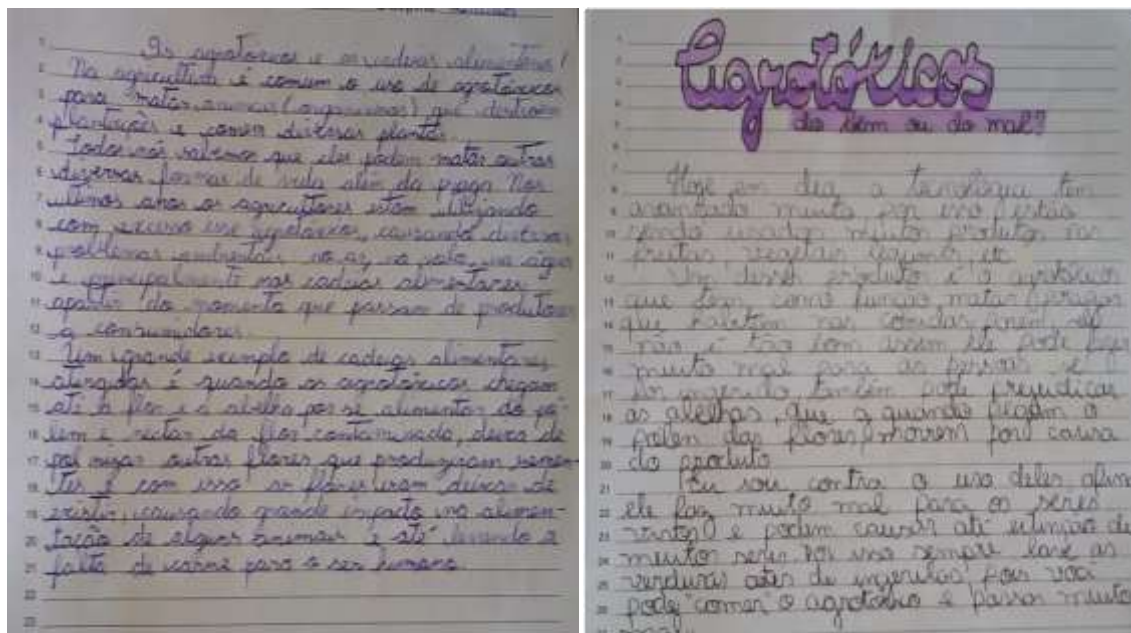 Os agrotóxicos e as cadeias alimentares!
Na agricultura é comum o uso de agrotóxicos
para matar animais (organismos) que destroem
plantações e comem diversas plantas.
Todos nós sabemos que eles podem matar outras
diversas formas de vida além da praga. Nos
últimos anos os agricultores estam utilizando
com excesso esse agrotóxicos, causando diversos
problemas ambientais no ar, no solo, na água
e principalmente nas cadeias alimentares
apartir do momento que passam de produtores
a consumidores.
Um grande exemplo de cadeias alimentares
atingidas é quando os agrotóxicos chegam
até a flor e a abelha por se alimentar do pó-
lem e nectar da flor contaminada, deixa de
polinizar outras flores que produziram semen-
tes e com isso as flores iram deixar de
existir, causando grande impacto na alimen-
tação de alguns animais e até levando a
falta de carne para o ser humano.
Agrotóxicos
do bem ou do mal?
Hoje em dia a tecnologia tem
avançado muito por isso estão
sendo usados muitos produtos nas
frutas vegetais legumes etc
Um desses produto é o agrotóxico
que tem como função matar pragas
que habitam nas comidas porém ele
não é tão bom assim ele pode fazer
muito mal para as pessoas se
for ingerido, também pode prejudicar
as abelhas, que a quando pegam o
polen das flores morrem por causa
do produto
Eu sou contra o uso deles afim
ele faz muito mal para os seres
vivos e podem causar até extinção de
muitos seres. Por isso sempre lave as
verduras antes de ingerilas pois você
pode "comer" o agrotóxico e passar muito